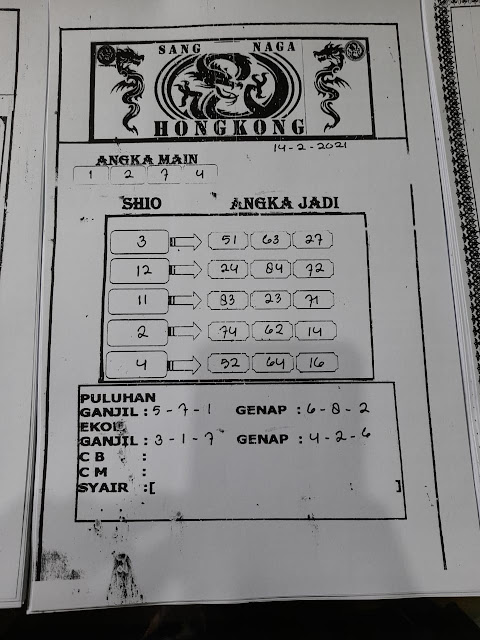 SANG NAGA
HONGKONG
14-2-2021
ANGKA MAIN
1 2 7 4
SHIO ANGKA JADI
3 51 63 27
12 24 84 72
11 83 23 71
2 74 62 14
4 52 64 16
PULUHAN
GANJIL : 5-7-1 GENAP : 6-8-2
EKOR
GANJIL : 3-1-7 GENAP : 4-2-6
C B :
C M :
SYAIR :[ ]